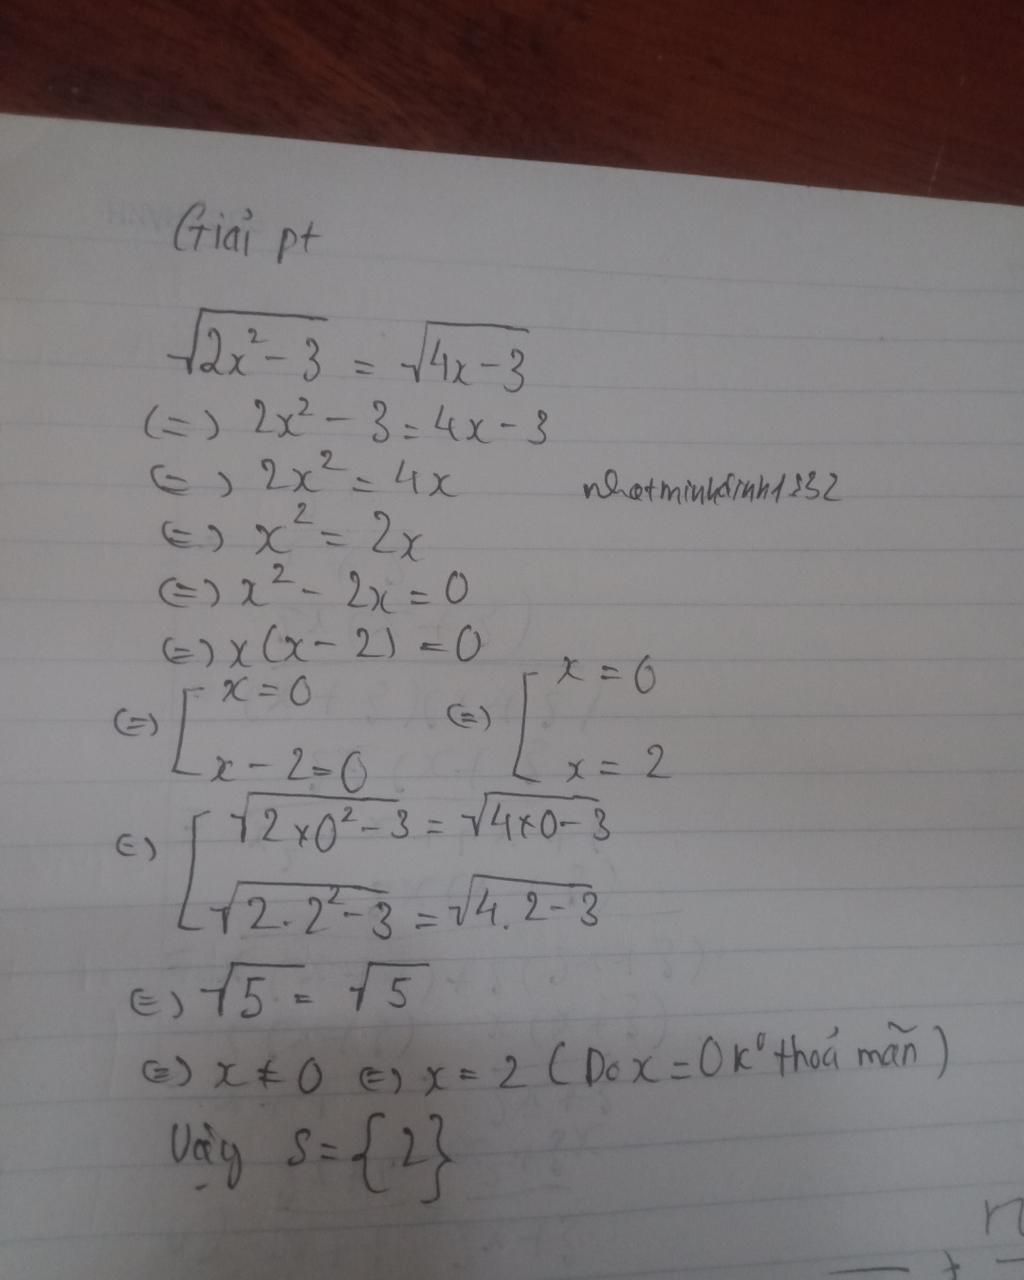 Giải pt
√(2x² - 3) = √(4x - 3)
(=) 2x² - 3 = 4x - 3
(=) 2x² = 4x
nhatminhdinh1332
(=) x² = 2x
(=) x² - 2x = 0
(=) x(x - 2) = 0
(=) [ x = 0 (=) [ x = 0
x - 2 = 0 x = 2
(=) [ √(2×0² - 3) = √(4×0 - 3)
√(2.2² - 3) = √(4.2 - 3)
(=) √5 = √5
(=) x ≠ 0 (=) x = 2 (Do x = 0 k⁰ thoả mãn)
Vậy S = {2}